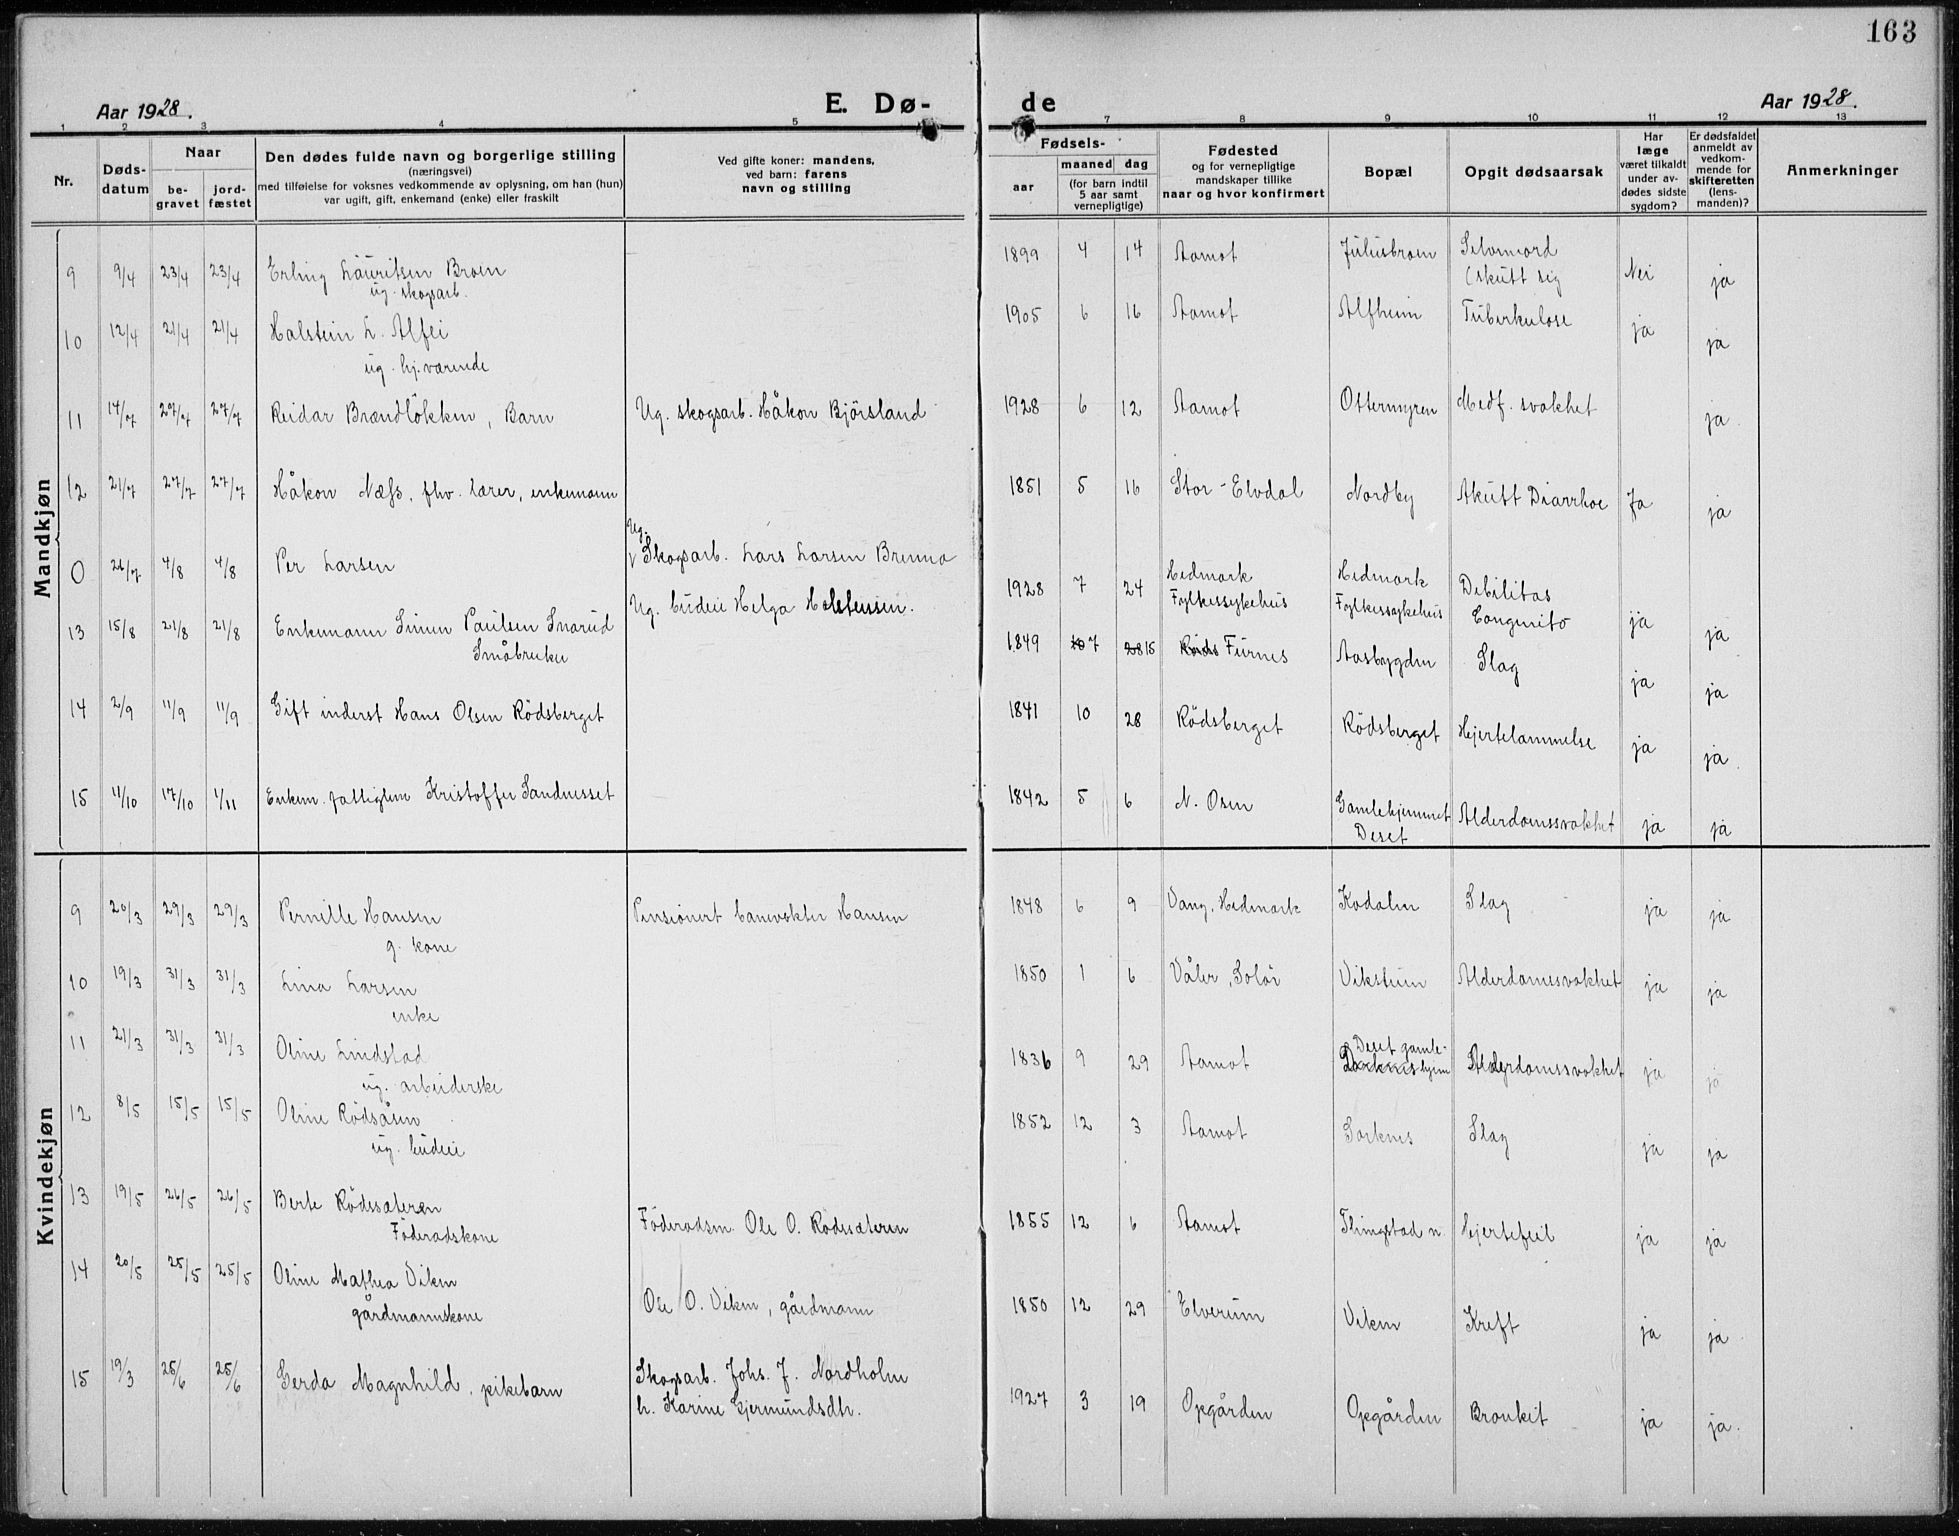 163
Aar 1928.
E. Dø-
de
Aar 1928.
1 2 3 4 5 7 8 9 10 11 12 13
Nr.
Døds-
datum
Naar
be-
gravet
jord-
fæstet
Den dødes fulde navn og borgerlige stilling
(næringsvei)
med tilføielse for voksnes vedkommende av oplysning, om han (hun)
var ugift, gift, enkemand (enke) eller fraskilt
Ved gifte koner: mandens,
ved barn: farens
navn og stilling
Fødsels-
aar
maaned dag
(for barn indtil
5 aar samt
vernepligtige)
Fødested
og for vernepligtige
mandskaper tillike
naar og hvor konfirmert
Bopæl
Opgit dødsaarsak
Har
læge
været tilkaldt
under av-
dødes sidste
sygdom?
Er dødsfaldet
anmeldt av
vedkom-
mende for
skifteretten
(lens-
manden)?
Anmerkninger
Mandkjøn
9 9/4 23/4 23/4 Erling Lauritsen Broen 1899 4 14 Aamot Juliusbroen Selvmord
ug. skogsarb. (skutt sig Nei ja
10 12/4 21/4 21/4 Halstein L. Alfei 1905 6 16 Aamot Alfheim Tuberkulose ja ja
ug. hj.værende
11 14/7 27/7 27/7 Reidar Brændløkken, Barn Ug. skogsarb. Håkon Bjørsland 1928 6 12 Aamot Ottermyren Medf. svakhet ja
12 21/7 27/7 27/7 Håkon Næss, fhv. lærer, enkemann 1851 5 16 Stor-Elvdal Nordby Akutt Diarrhoe Ja ja
Ug.
0 26/7 4/8 4/8 Per Larsen Skogsarb. Lars Larsen Brenna 1928 7 24 Hedmark Hedmark Debilitas
Ug. budeie Helga Holstensen. Fylkessykehus Fylkessykehus Congenita ja ja
13 15/8 21/8 21/8 Enkemann Simen Paulsen Snarud 1849 10 7 28 15 Furnes Aasbygden Slag ja ja
Småbruker
14 2/9 11/9 11/9 Gift inderst Hans Olsen Rödsberget 1841 10 28 Rödsberget Rödsberget Hjertelammelse ja ja.
15 11/10 17/10 1/11 Enkem. fattiglem Kristoffer Sandnesset 1842 5 6 N. Osen Gamlehjemmet Alderdomssvakhet ja ja
Deset
Kvindekjøn
9 20/3 29/3 29/3 Pernille Hansen Pensionert banevokter Hansen 1848 6 9 Vang, Hedmark Kodalen Slag ja ja
g. kone
10 19/3 31/3 31/3 Lina Larsen 1850 1 6 Våler, Solør Vikstuen Alderdomssvakhet ja ja
enke
11 21/3 31/3 31/3 Oline Lindstad 1836 9 29 Aamot Deset gamle- Alderdomssvakhet ja ja
hjem
ug. arbeiderske
12 8/5 15/5 15/5 Oline Rödsåsen 1852 12 3 Aamot Sorknes Slag ja ja
ug. budeie
13 19/5 26/5 26/5 Berte Rödssæteren Föderadsm. Ole O. Rödssæteren 1855 12 6 Aamot Tlingstad n. Hjertefeil ja ja
Föderadskone
14 20/5 25/5 25/5 Oline Mathea Viken Ole O. Viken, gårdmann 1850 12 29 Elverum Viken Kreft ja ja
gårdmannskone
15 19/3 25/6 25/6 Gerda Magnhild, pikebarn Skogsarb. Johs. J. Nordholm 1927 3 19 Opgården Opgården Bronkit ja ja.
h. Karine Gjermundsdtr.